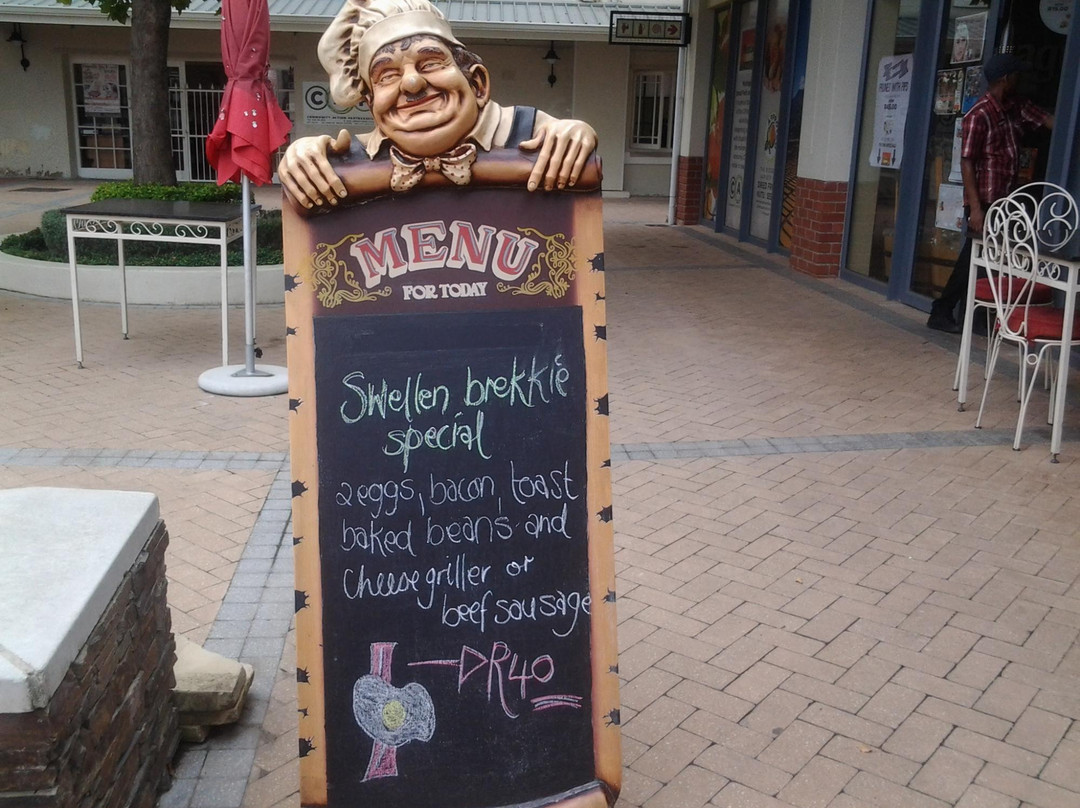 MENU
FOR TODAY
Swellen brekkie
special
2 eggs, bacon, toast
baked beans and
cheese griller or
beef sausage
R40